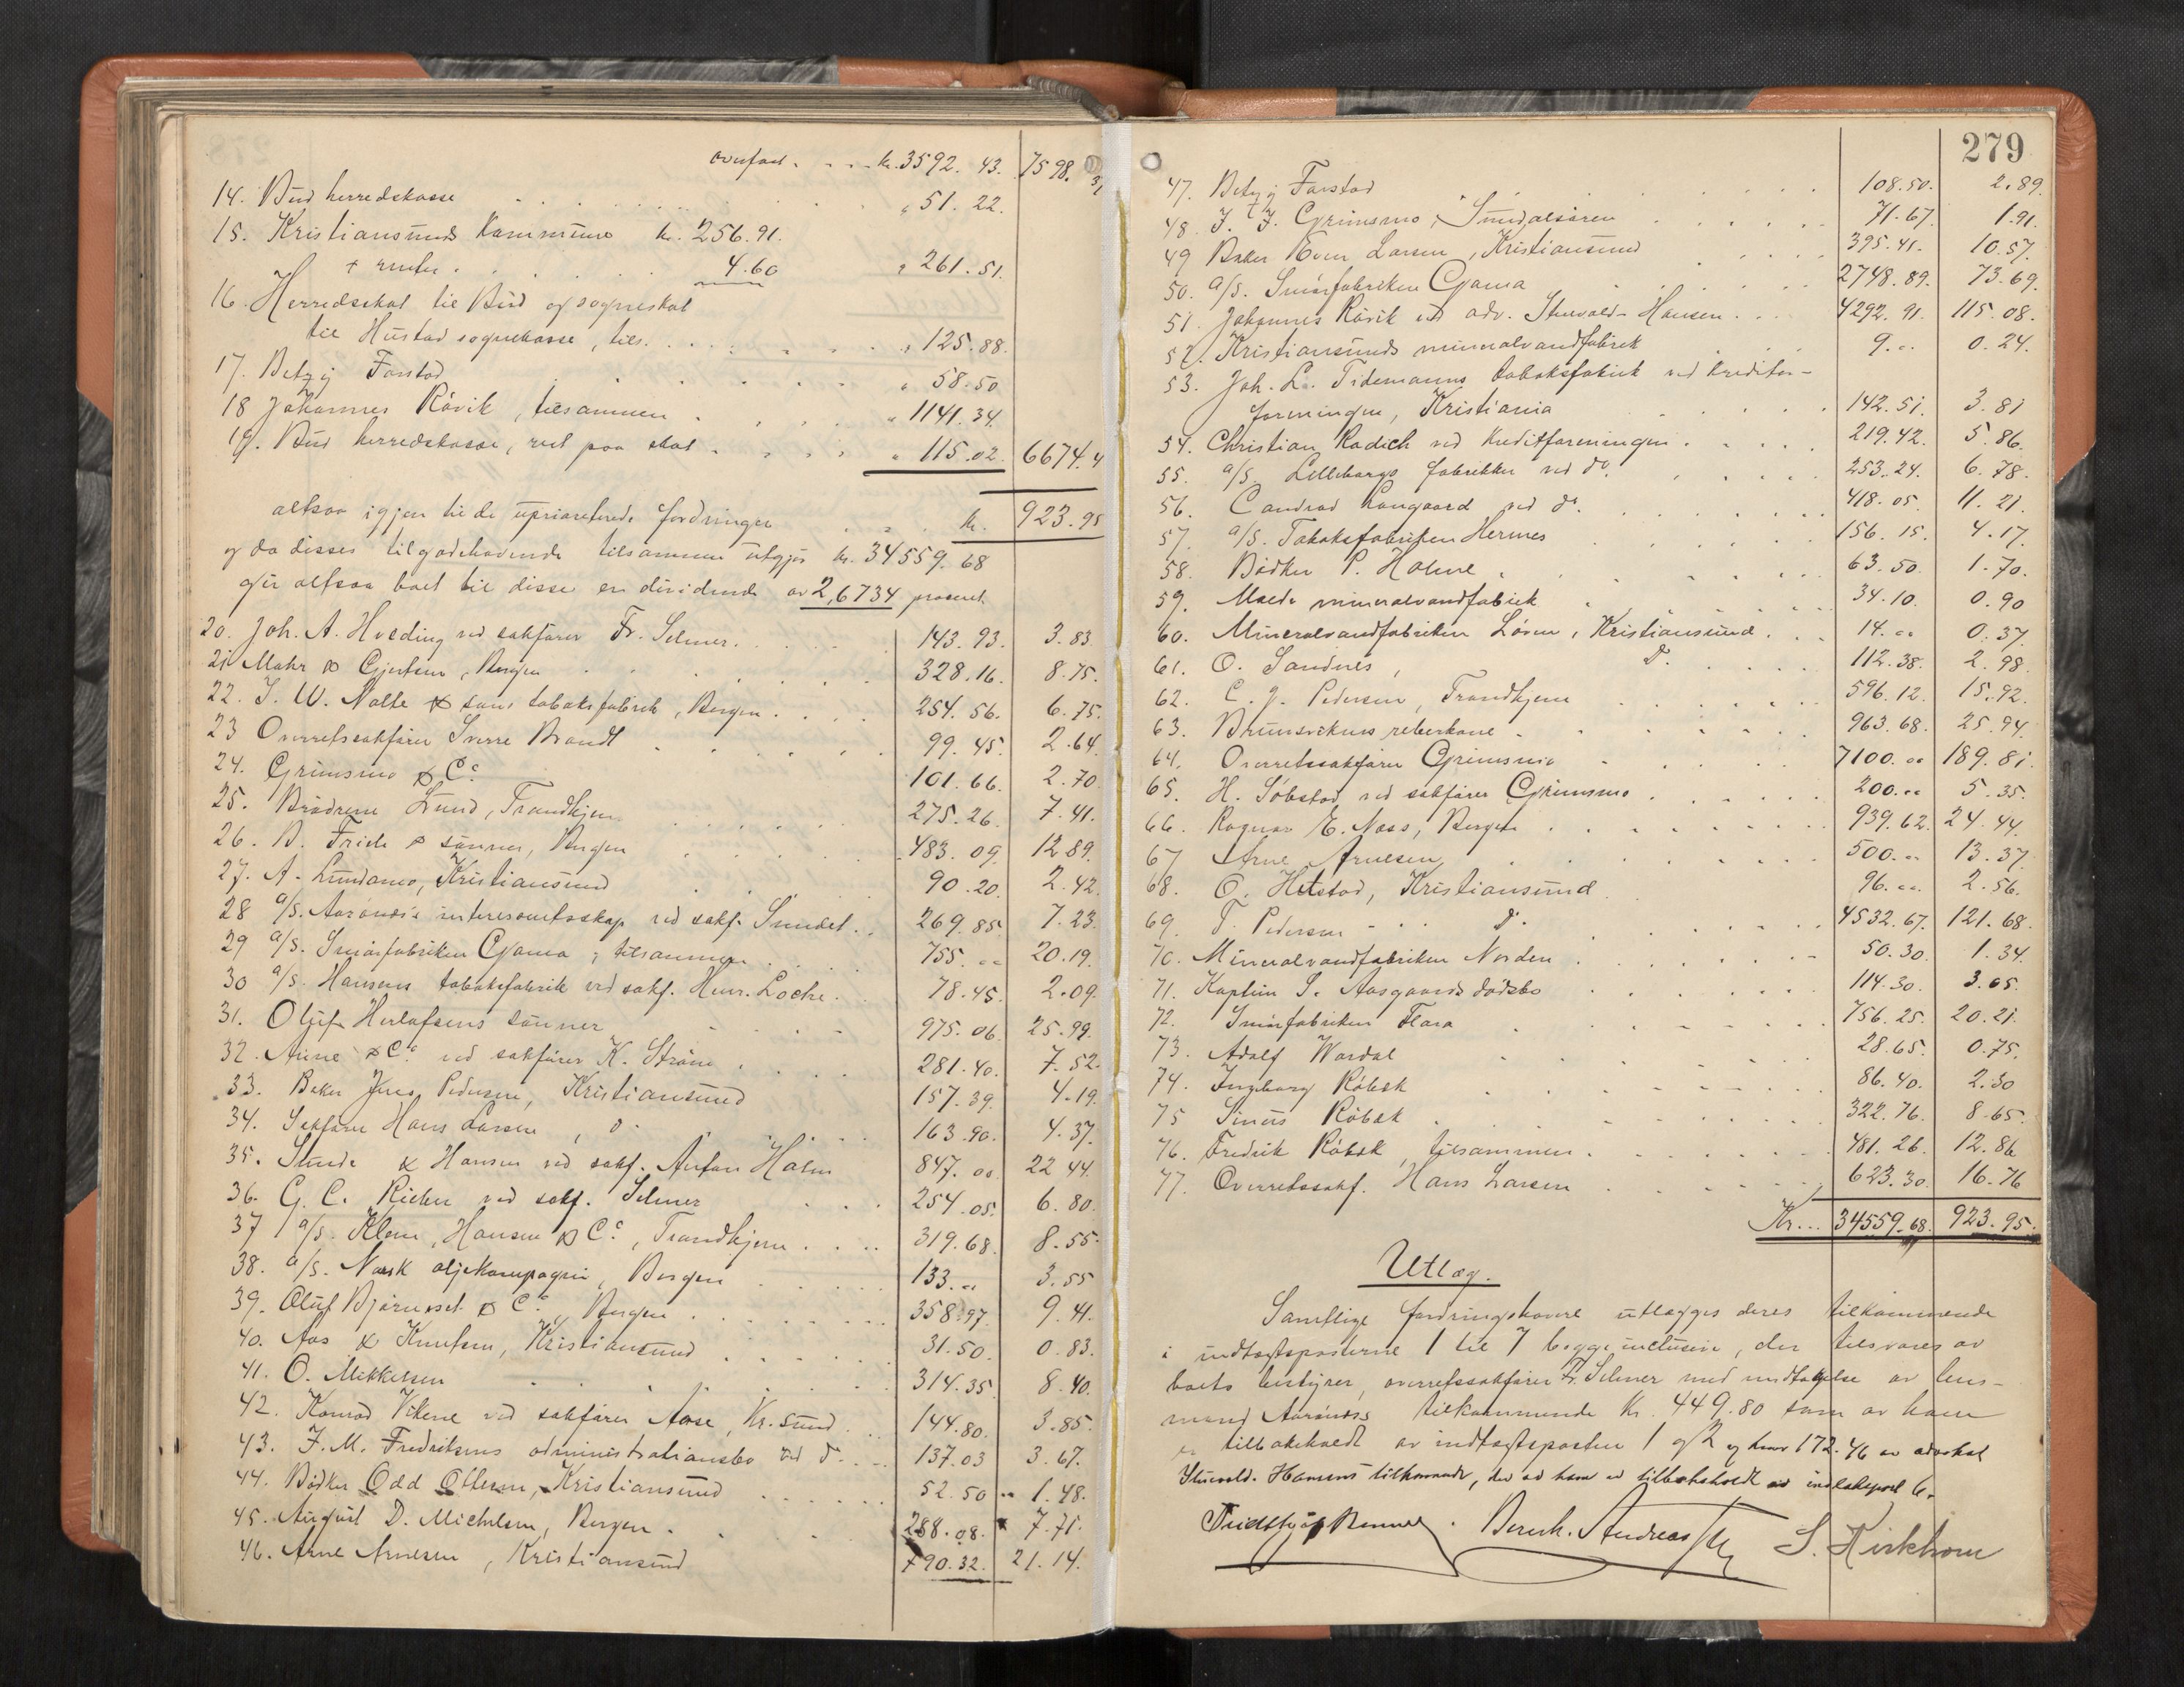 overført . . . kr. 3592. 43. 7598. 3
14. Bud herredskasse . . . " 51. 22.
15. Kristiansunds kommune kr. 256.91.
+ renter . . . 4.60 " 261. 51.
16. Herredsskat til Bud og sogneskat
til Hustad sognekasse, tils. . . . " 125.88.
17. Betzy Farstad . . . " 58.50
18 Johannes Råvik, tilsammen . . . " 1141.34.
19. Bud herredskasse, rest paa skat . . . " 115.02. 6674.4
altsaa igjen til de uprioriterede fordringer . . . kr. 923.95
og da disses tilgodehavende tilsammen utgjør kr. 34559.68
gir altsaa boet til disse en dividende av 2,6734 procent.
20. Joh. A. Hveding ved sakfører Fr. Selmer . . . 143.93. 3.83.
21 Mohr & Gjertsen, Bergen . . . 328.16. 8.75.
22. J. W. Nolte & søns tobaksfabrik, Bergen . . . 254.56. 6.75.
23 Overretssakfører Sverre Brandt . . . 99.45. 2.64.
24. Grimsmo & Co . . . 101.66. 2.70.
25. Brødrene Lund, Trondhjem . . . 275.26. 7.41.
26. B. Friele & sønner, Bergen . . . 483.09. 12.89.
27. A. Lundamo, Kristiansund . . . 90.20. 2.42.
28 a/s. Aarønæs interessentsskap ved sakf. Sundet . . 269.85. 7.23.
29 a/s. Smørfabriken Gjama, tilsammen . . . 755. " 20.19.
30 a/s. Hansens tobaksfabrik ved sakf. Henr. Loche . . 78.45. 2.09.
31. Oluf Herlofsens sønner . . . 975.06. 25.99.
32. Arne & Co. ved sakfører K. Strøm . . . 281.40. 7.52.
33. Baker Jens Pedersen, Kristiansund 157.39. 4.19.
34. Sakfører Hans Larsen, do . . . 163.90. 4.37.
35. Sunde & Hansen ved sakf. Anton Holm 847.00. 22.44.
36. G. C. Rieber ved sakf. Selmer . . . 254.05. 6.80.
37 a/s. Klem, Hansen & Co, Trondhjem . . . 319.68. 8.55.
38. a/s. Norsk oljekompagni, Bergen . . . 133. " 3.55
39. Oluf Bjørneset & Co, Bergen . . . 358.97. 9.41.
40. Aas & Knutsen, Kristiansund . . . 31.50. 0.83.
41. O. Mikkelsen . . . 314.35. 8.40.
42. Konrad Vikene ved sakfører Aase, Kr.sund . . 144.80. 3.85.
43. J. M. Fredriksens administrationsbo ved do . . . 137.03 3.67.
44. Bødker Odd Ottesen, Kristiansund . . . 52.50 1.48.
45. August D. Michelsen, Bergen . . . 288.08. 7.71.
46. Arne Arnesen, Kristiansund 790.32. 21.14.
279
47. Betzy Farstad . . . 108.50. 2.89.
48. J. J. Grimsmo, Sundalsøren . . . 71.67. 1.91.
49 Baker Even Larsen, Kristiansund . . . 395.41. 10.57.
50. a/s. Smørfabriken Gjama . . . 2748.89. 73.69.
51. Johannes Råvik ved adv. Stuevold-Hansen . . . 4292.91. 115.08.
52. Kristiansunds mineralvandfabrik . . . 9. " 0.24.
53. Joh. L. Tidemanns tobaksfabrik ved kreditor-
foreningen, Kristiania . . . 142.51. 3.81
54. Christian Radich ved kreditforeningen . . . 219.42. 5.86.
55. a/s. Lilleborgs fabrikker ved do. . . . 253.24. 6.78.
56. Conrad Langaard ved do. . . . 418.05. 11.21.
57. a/s. Tobaksfabriken Hermes . . . 156.15. 4.17.
58. Bødker P. Holme . . . 63.50. 1.70.
59. Molde mineralvandfabrik . . . 34.10. 0.90
60. Mineralvandfabriken Løven, Kristiansund . . . 14. " 0.37.
61. O. Sandnes, do. . . . 112.38. 2.98.
62. C. J. Pedersen, Trondhjem . . . 596.12. 15.92.
63. Brunsvikens reberbane . . . 963.68. 25.94.
64. Overretssakfører Grimsmo . . . 7100. " 189.81.
65. H. Søbstad, ved sakfører Grimsmo . . . 200. " 5.35.
66. Ragnar E. Næss, Bergen . . . 939.62. 24.44.
67 Arne Arnesen . . . 500. " 13.37.
68. O. Hitstad, Kristiansund . . . 96. " 2.56.
69. T. Pedersen - do. . . . 4532.67. 121.68.
70. Mineralvandfabriken Norden . . . 50.30. 1.34.
71. Kaptein S. Aasgaards dødsbo . . . 114.30. 3.05.
72. Smørfabriken Flora . . . 756.25. 20.21.
73. Adolf Wardal . . . 28.65. 0.75.
74. Ingeborg Røbæk . . . 86.40. 2.30
75 Sinius Røbæk . . . 322.76. 8.65.
76. Fredrik Røbæk, tilsammen . . . 481.26. 12.86
77. Overretssakf. Hans Larsen . . . 623.30. 16.76
Kr... 34559.68. 923.95.
Utlæg.
Samtlige fordringshavere utlægges deres tilkommende
i indtægtsposterne 1 til 7 begge inclusive, der tilsvares av
boets bestyrer, overretssakfører Fr. Selmer med undtagelse av lens-
mand Aarønæss tilkommende kr. 449.80 som av ham
er tilbakeholdt av indtægtsposten 1 og 2 og kroner 172.46 av advokat
Stuevold-Hansens tilkommende, der av ham er tilbakeholdt av indtægtspost 6.
Fridthjof Bernh. Andreas S. Kirkhorn